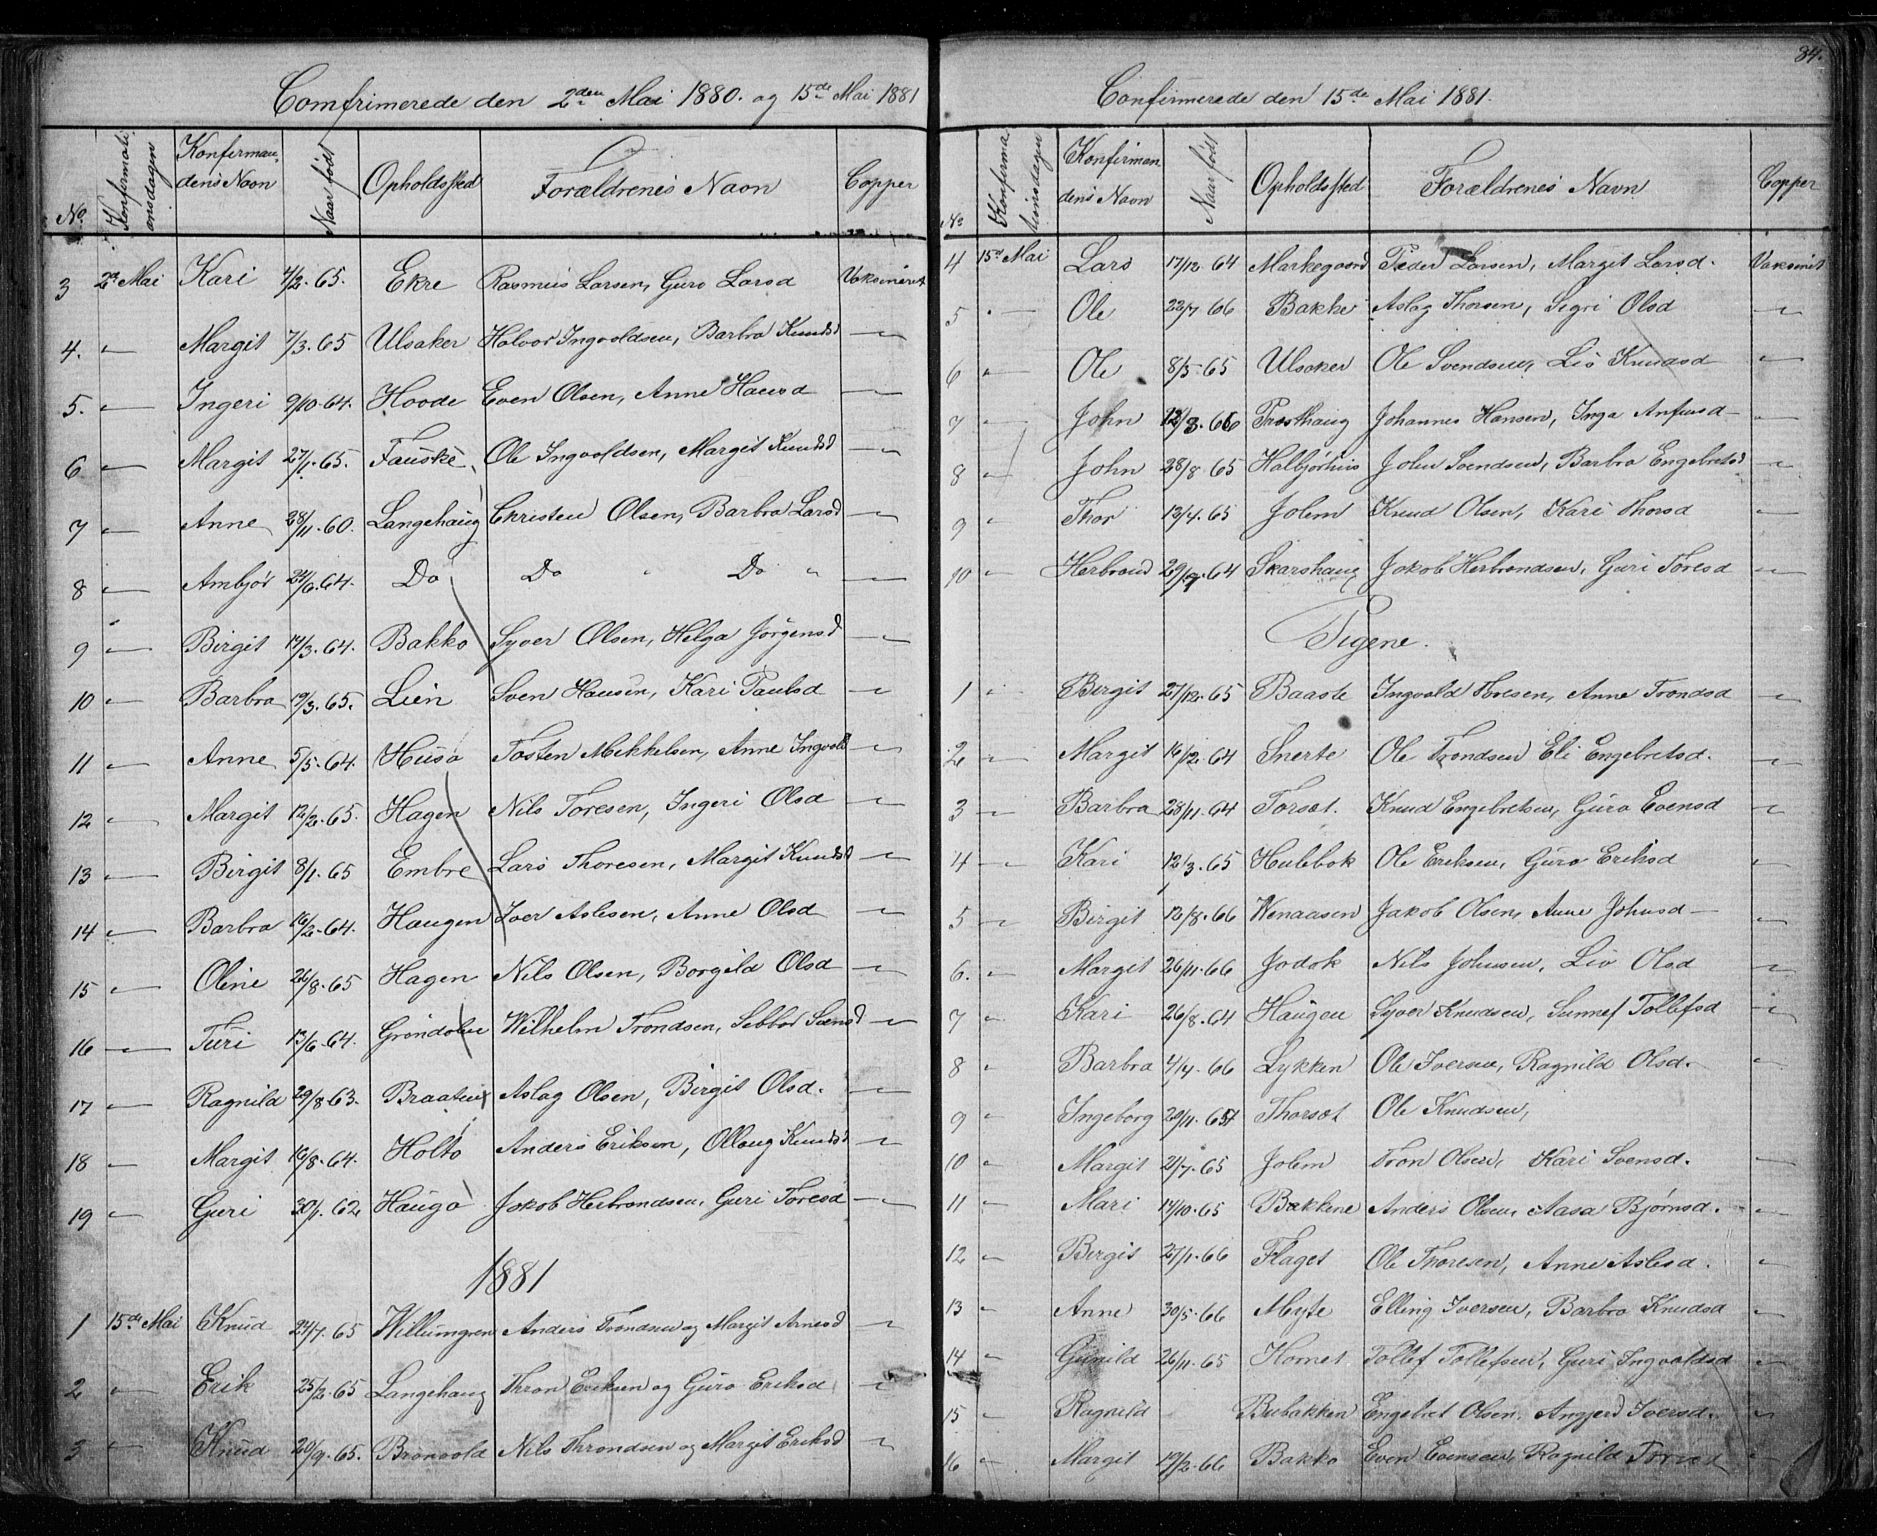 Comfrimerede den 2den Mai 1880. og 15de Mai 1881
No. Konfirmationsdagen Konfirmandens Navn Naar født Opholdssted Forældrenes Navn Copper
3 2d Mai Kari 4/2. 65. Ekre Rasmus Larsen, Guro Larsd Vaksineret
4. " Margit 7/3. 65 Ulsaker Halvor Ingvoldsen, Barbra Knudsd "
5. " Ingeri 9/10. 64. Hoode Even Olsen, Anne Hansd "
6 " Margit 27/1. 65. Fauske Ole Ingvoldsen, Margit Knudsd "
7 " Anne 28/11. 60. Langehaug Christen Olsen, Barbra Larsd "
8 " Ambjør 24/6. 64. Do Do " Do " "
9 " Birgit 17/3. 64. Bakko Syver Olsen, Helga Jörgensd "
10 " Barbra 19/3. 65. Lien Sven Hansen, Kari Paulsd "
11 " Anne 5/5. 64. Huso Tosten Mikkelsen, Anne Ingvolds "
12 " Margit 12/2. 65. Hagen Nils Toresen, Ingeri Olsd "
13 " Birgit 8/1. 65 Embre Lars Thoresen, Margit Knudsd "
14 " Barbra 16/2. 64. Haugen Iver Aslesen, Anne Olsd "
15 " Oline 26/8. 65 Hagen Nils Olsen, Borgild Olsd "
16 " Turi 13/6. 64. Gröndolen Wilhelm Trondsen, Sebbor Svensd "
17 " Ragnild 29/8 63. Braaten Aslag Olsen, Birgit Olsd. "
18 " Margit 16/8. 64. Holto Anders Eriksen, Ollaug Knudsd "
19 " Guri 30/1. 62 Haugo Jakob Herbrandsen, Guri Toresd "
1881
1 15de Mai Knud 24/7. 65 Willumgren Anders Trondsen og Margit Arnesd "
2 " Erik 25/2. 65 Langehaug Thron Eriksen og Guro Eriksd "
3 " Knud 20/9. 65. Bronvold Nils Throndsen og Margit Eriksd "
84.
Confirmerede den 15de Mai 1881.
No Konfirmationsdagen Konfirmandens Navn Naar født Opholdssted Forældrenes Navn Copper
4 15de Mai Lars 17/12. 64 Markegaard Peder Larsen, Margit Larsd. Vaksinet
5 " Ole 22/7 66 Bakke Aslag Thorsen, Sigri Olsd "
6 " Ole 8/5. 65 Ulsaker Ole Svendsen, Lis Knudsd "
7 " John 12/3. 66 Prosthaug Johannes Hansen, Inga Anfinsd "
8 " John 28/8. 65 Halbjørhus John Svendsen, Barbra Engebretsd "
9 " Thor 13/4. 65 Jolem Knud Olsen, Kari Thorsd "
10 " Herbrand 29/9. 64 Skarshaug Jakob Herbrandsen, Guri Toresd "
Pigene.
1 " Birgit 27/12. 65 Baaste Ingvald Toresen, Anne Trondsd "
2 " Margit 16/12. 64 Snerte Ole Trondsen Eli Engebretsd. "
3 " Barbra 28/11. 64 Torset. Knud Engebretsen, Guro Evensd "
4 " Kari 12/3. 65 Hulebok Ole Eriksen, Guro Eriksd "
5 " Birgit 13/8. 66 Wenaasen Jakob Olsen, Anne Johnsd "
6. " Margit 26/11. 66 Jodok Nils Johnsen, Liv Olsd "
7 " Kari 26/8. 64 Haugen Syver Knudsen, Sunnef Tollefsd "
8 " Barbra 4/4. 66 Lykken Ole Iversen, Ragnild Olsd. "
9 " Ingeborg 20/11. 65 Thorset Ole Knudsen,
10 " Margit 21/7. 65 Jolem Tron Olsen, Kari Svensd. "
11 " Mari 14/10. 65 Bakkene Anders Olsen, Aasa Bjørnsd. "
12 " Birgit 27/1. 66 Flaget Ole Thoresen, Anne Aslesd. "
13 " Anne 30/5. 66 Myte Elling Iversen, Barbro Knudsd "
14 " Gunild 26/11. 65 Homet Tollef Tollefsen, Guri Ingvoldsd "
15 " Ragnild Bubakken Engebret Olsen, Angjerd Iversd. "
16 " Margit 19/2. 66 Bakko Even Evensen, Ragnild Toresd "